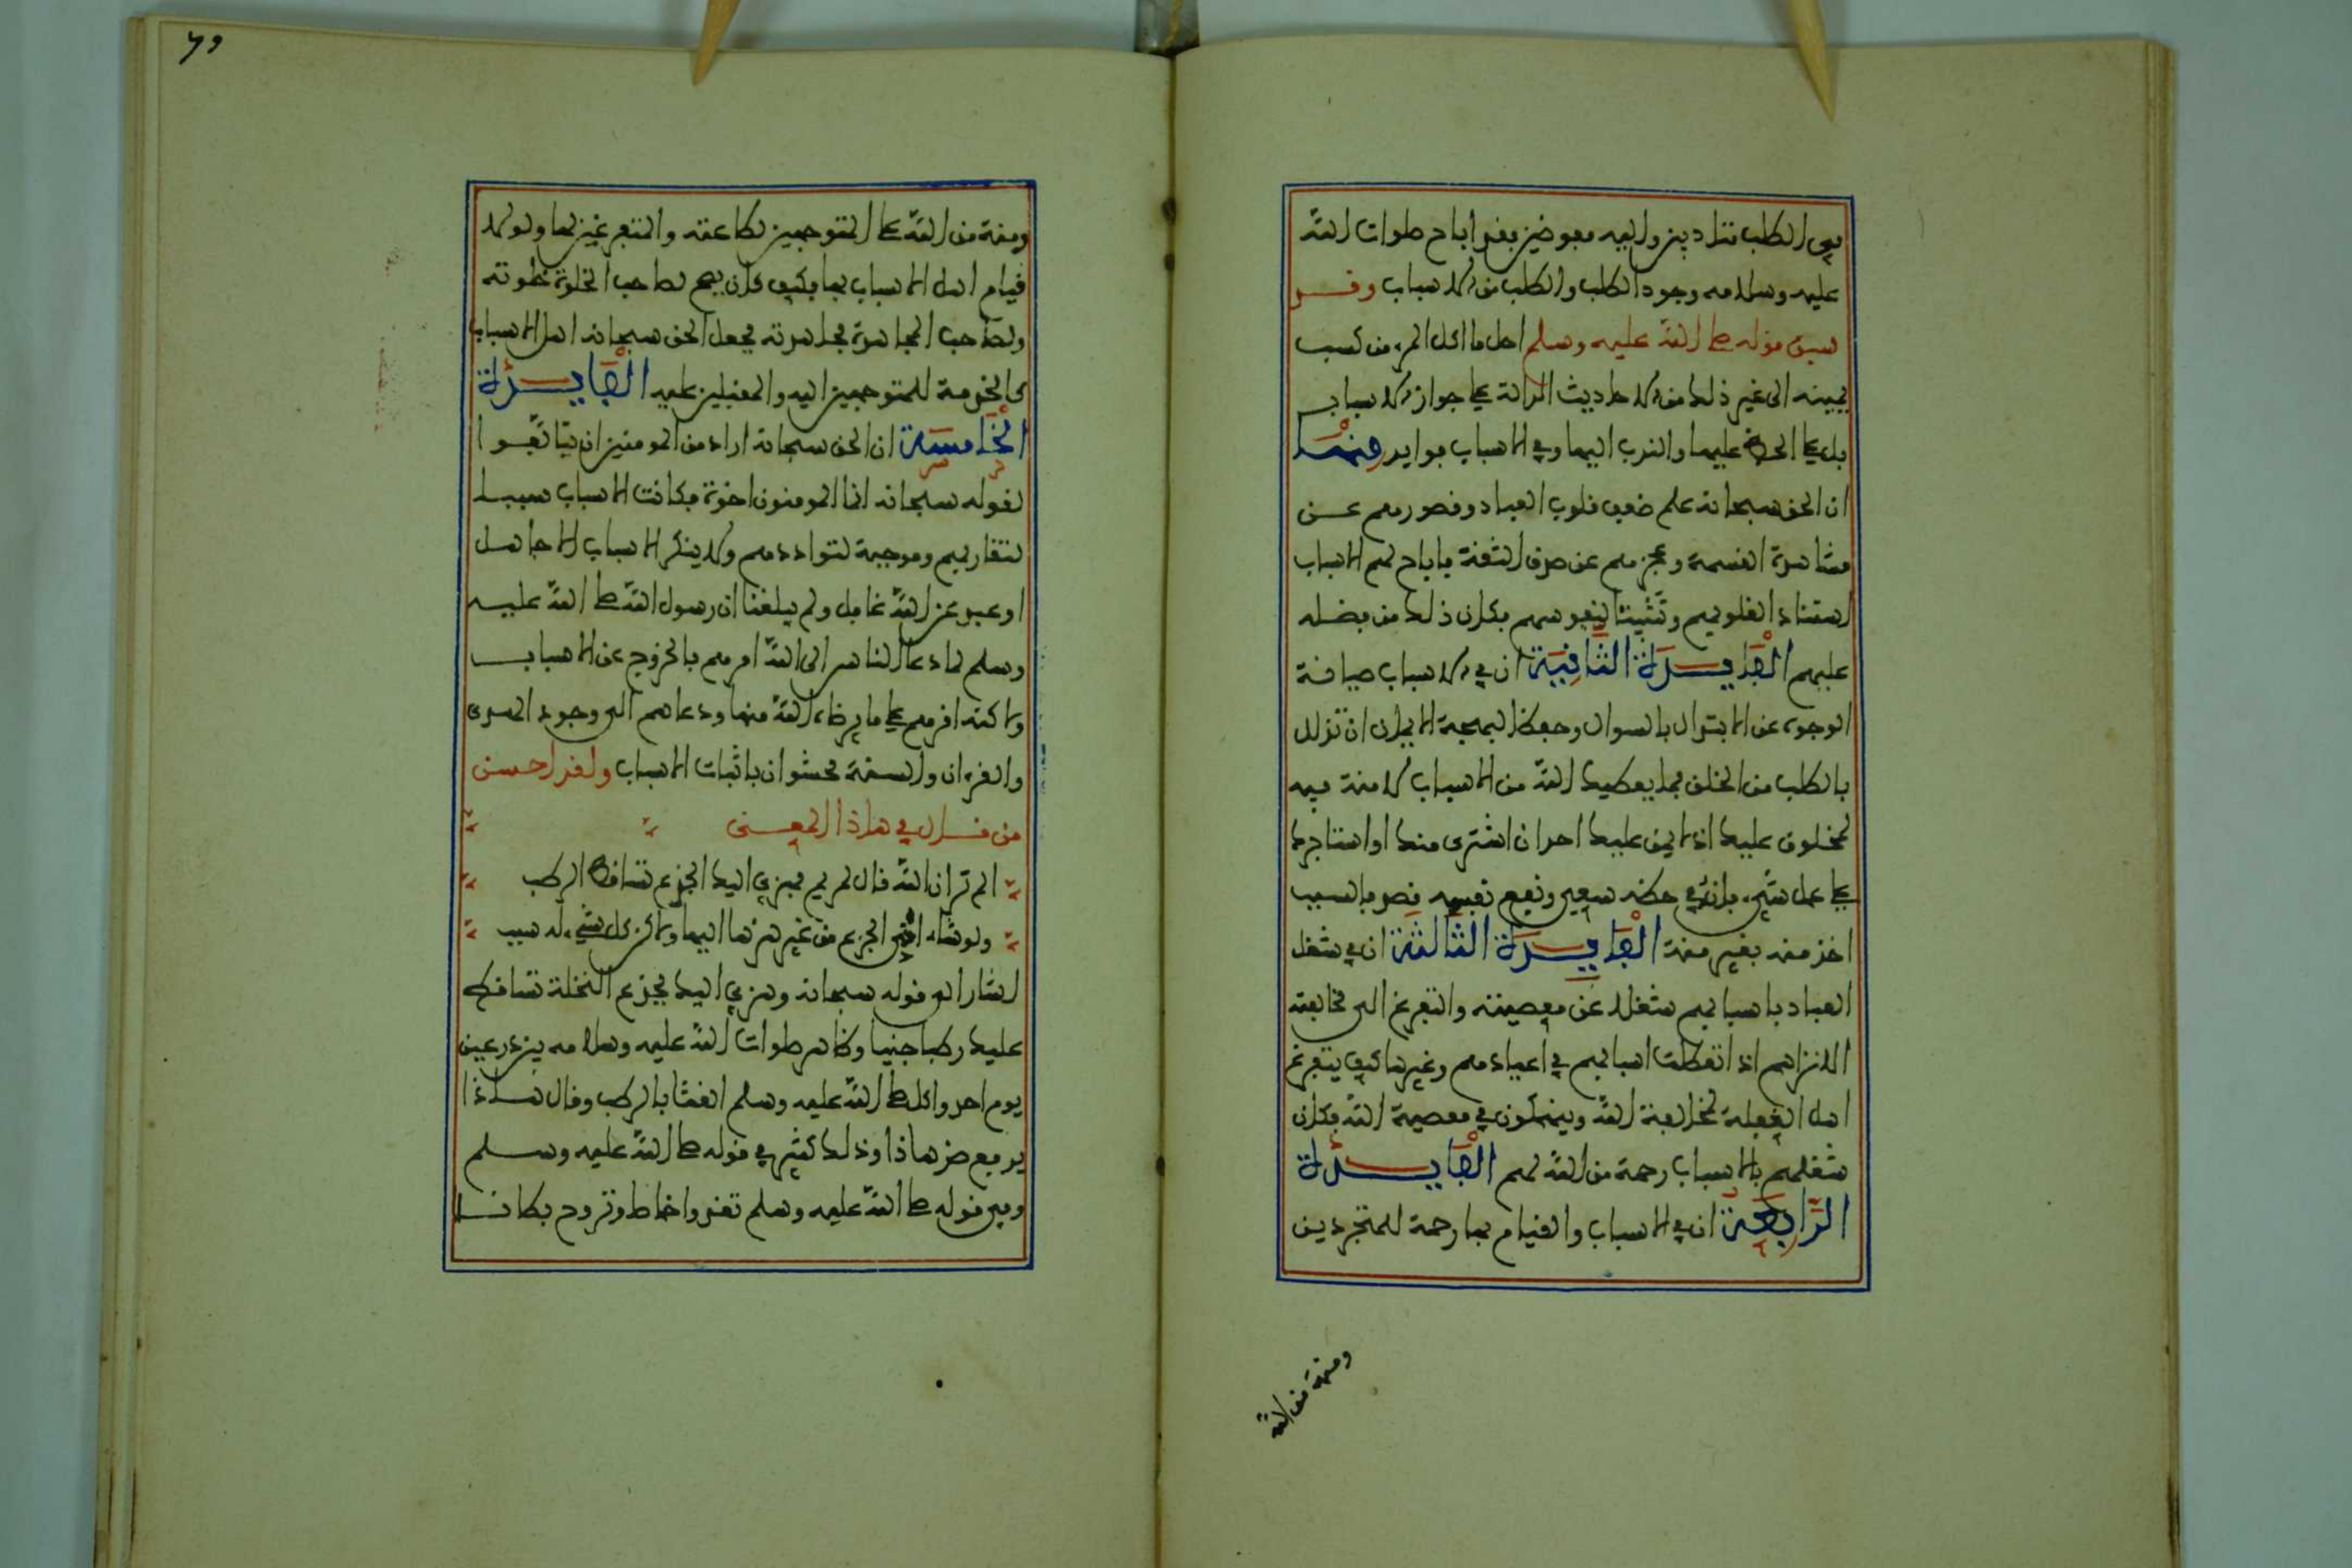 في الطلب تنادين والبعد مفوضين فقد اباح صلوات الله
عليه وسلامه وجود الطلب والطلب من الاسباب وقد
سبق قوله صلى الله عليه وسلم احل ما اكل المرء من كسب
يمينه الى غير ذلك من الاحاديث الدالة على جواز الاسباب
بل على الحض عليها والندب اليها وفي الاسباب فوايد منها
ان الحق سبحانه علم ضعف قلوب العباد وقصورهم عن
مشاهدة القسمة وعجزهم عن صدق الثقة فاباح لهم الاسباب
استنادا لقلوبهم وتثبيتا لنفوسهم فكان ذلك من فضله
عليهم الفايدة الثانية ان في الاسباب صيانة
الوجوه عن الابتذال بالسوال وحفظ البهجة الايمان ان تزلل
بالطلب من الخلق فما يعطيك الله من الاسباب لا منة فيه
لمخلوق عليك اذ لا يمن عليك احد ان اشترى منك او استاجرك
على عمل شيء فانه في حظه سعى ونفع نفسه قصد فالسبب
اخذ منه بغير منة الفايدة الثالثة ان في شغل
العباد باسبابهم شغلا عن معصيته والتفرغ الى مخالفته
الا تراهم اذا تعطلت اسبابهم في اعيادهم وغيرها كيف يتفرغ
اهل الغفلة لمخالفة الله وينهمكون في معصية الله فكان
شغلهم بالاسباب رحمة من الله لهم الفايدة
الرابعة ان في الاسباب والقيام بها رحمة للمتجردين
ومنة من الله
ومنة من الله على المتوجهين لطاعته والمتفرغين لها ولولا
قيام اهل الاسباب بها فكيف كان يصح لصاحب الخلوة خلوته
ولصاحب المجاهدة مجاهدته فجعل الحق سبحانه اهل الاسباب
كالخدمة للمتوجهين اليه والمقبلين عليه الفايدة
الخامسة ان الحق سبحانه اراد من المومنين ان يتالفوا
لقوله سبحانه انما المومنون اخوة فكانت الاسباب سببا
لتقاربهم وموجبة لتواددهم ولا ينكر الاسباب الا جاهل
او عبد عن الله غافل ولم يبلغنا ان رسول الله صلى الله عليه
وسلم لما دعا الناس الى الله امرهم بالخروج عن الاسباب
ولاكنه اقرهم على ما يرضاه الله منها ودعاهم الى وجود الهدى
والقرءان والسنة محشوان باثبات الاسباب ولقد احسن
من قال في هاذا المعنى
الم تر ان الله قال لمريم فهزي اليك الجذع تساقط الرطب
ولو شاء احنى الجذع من غير هزها اليها ولاكن كل شيء له سبب
اشار الى قوله سبحانه وهزي اليك بجذع النخلة تساقط
عليك رطبا جنيا وظاهر صلوات الله عليه وسلامه بين درعين
يوم احد واكل صلى الله عليه وسلم القثا بالرطب وقال هاذا
يدفع ضر هاذا وذلك كثير في قوله صلى الله عليه وسلم
وفي قوله صلى الله عليه وسلم تغدوا خماصا وتروح بطانا